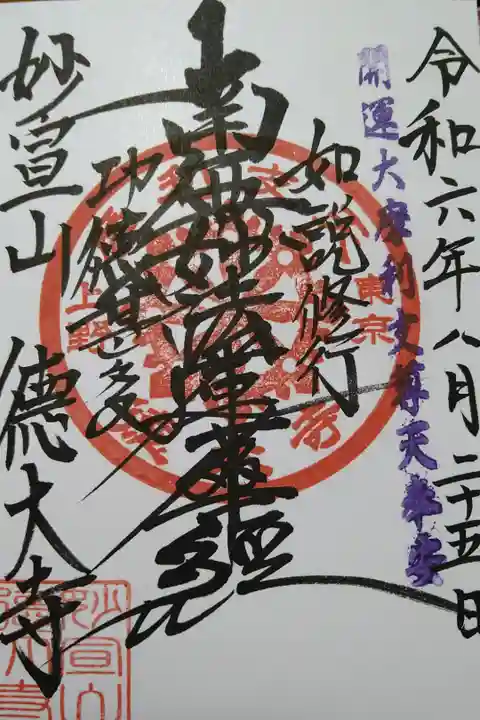 令和六年八月二十五日
開運大摩利支尊天奉安
如説修行
南無妙法蓮華経
功徳甚多
妙宣山
徳大寺
東京
上野
妙宣山
徳大寺